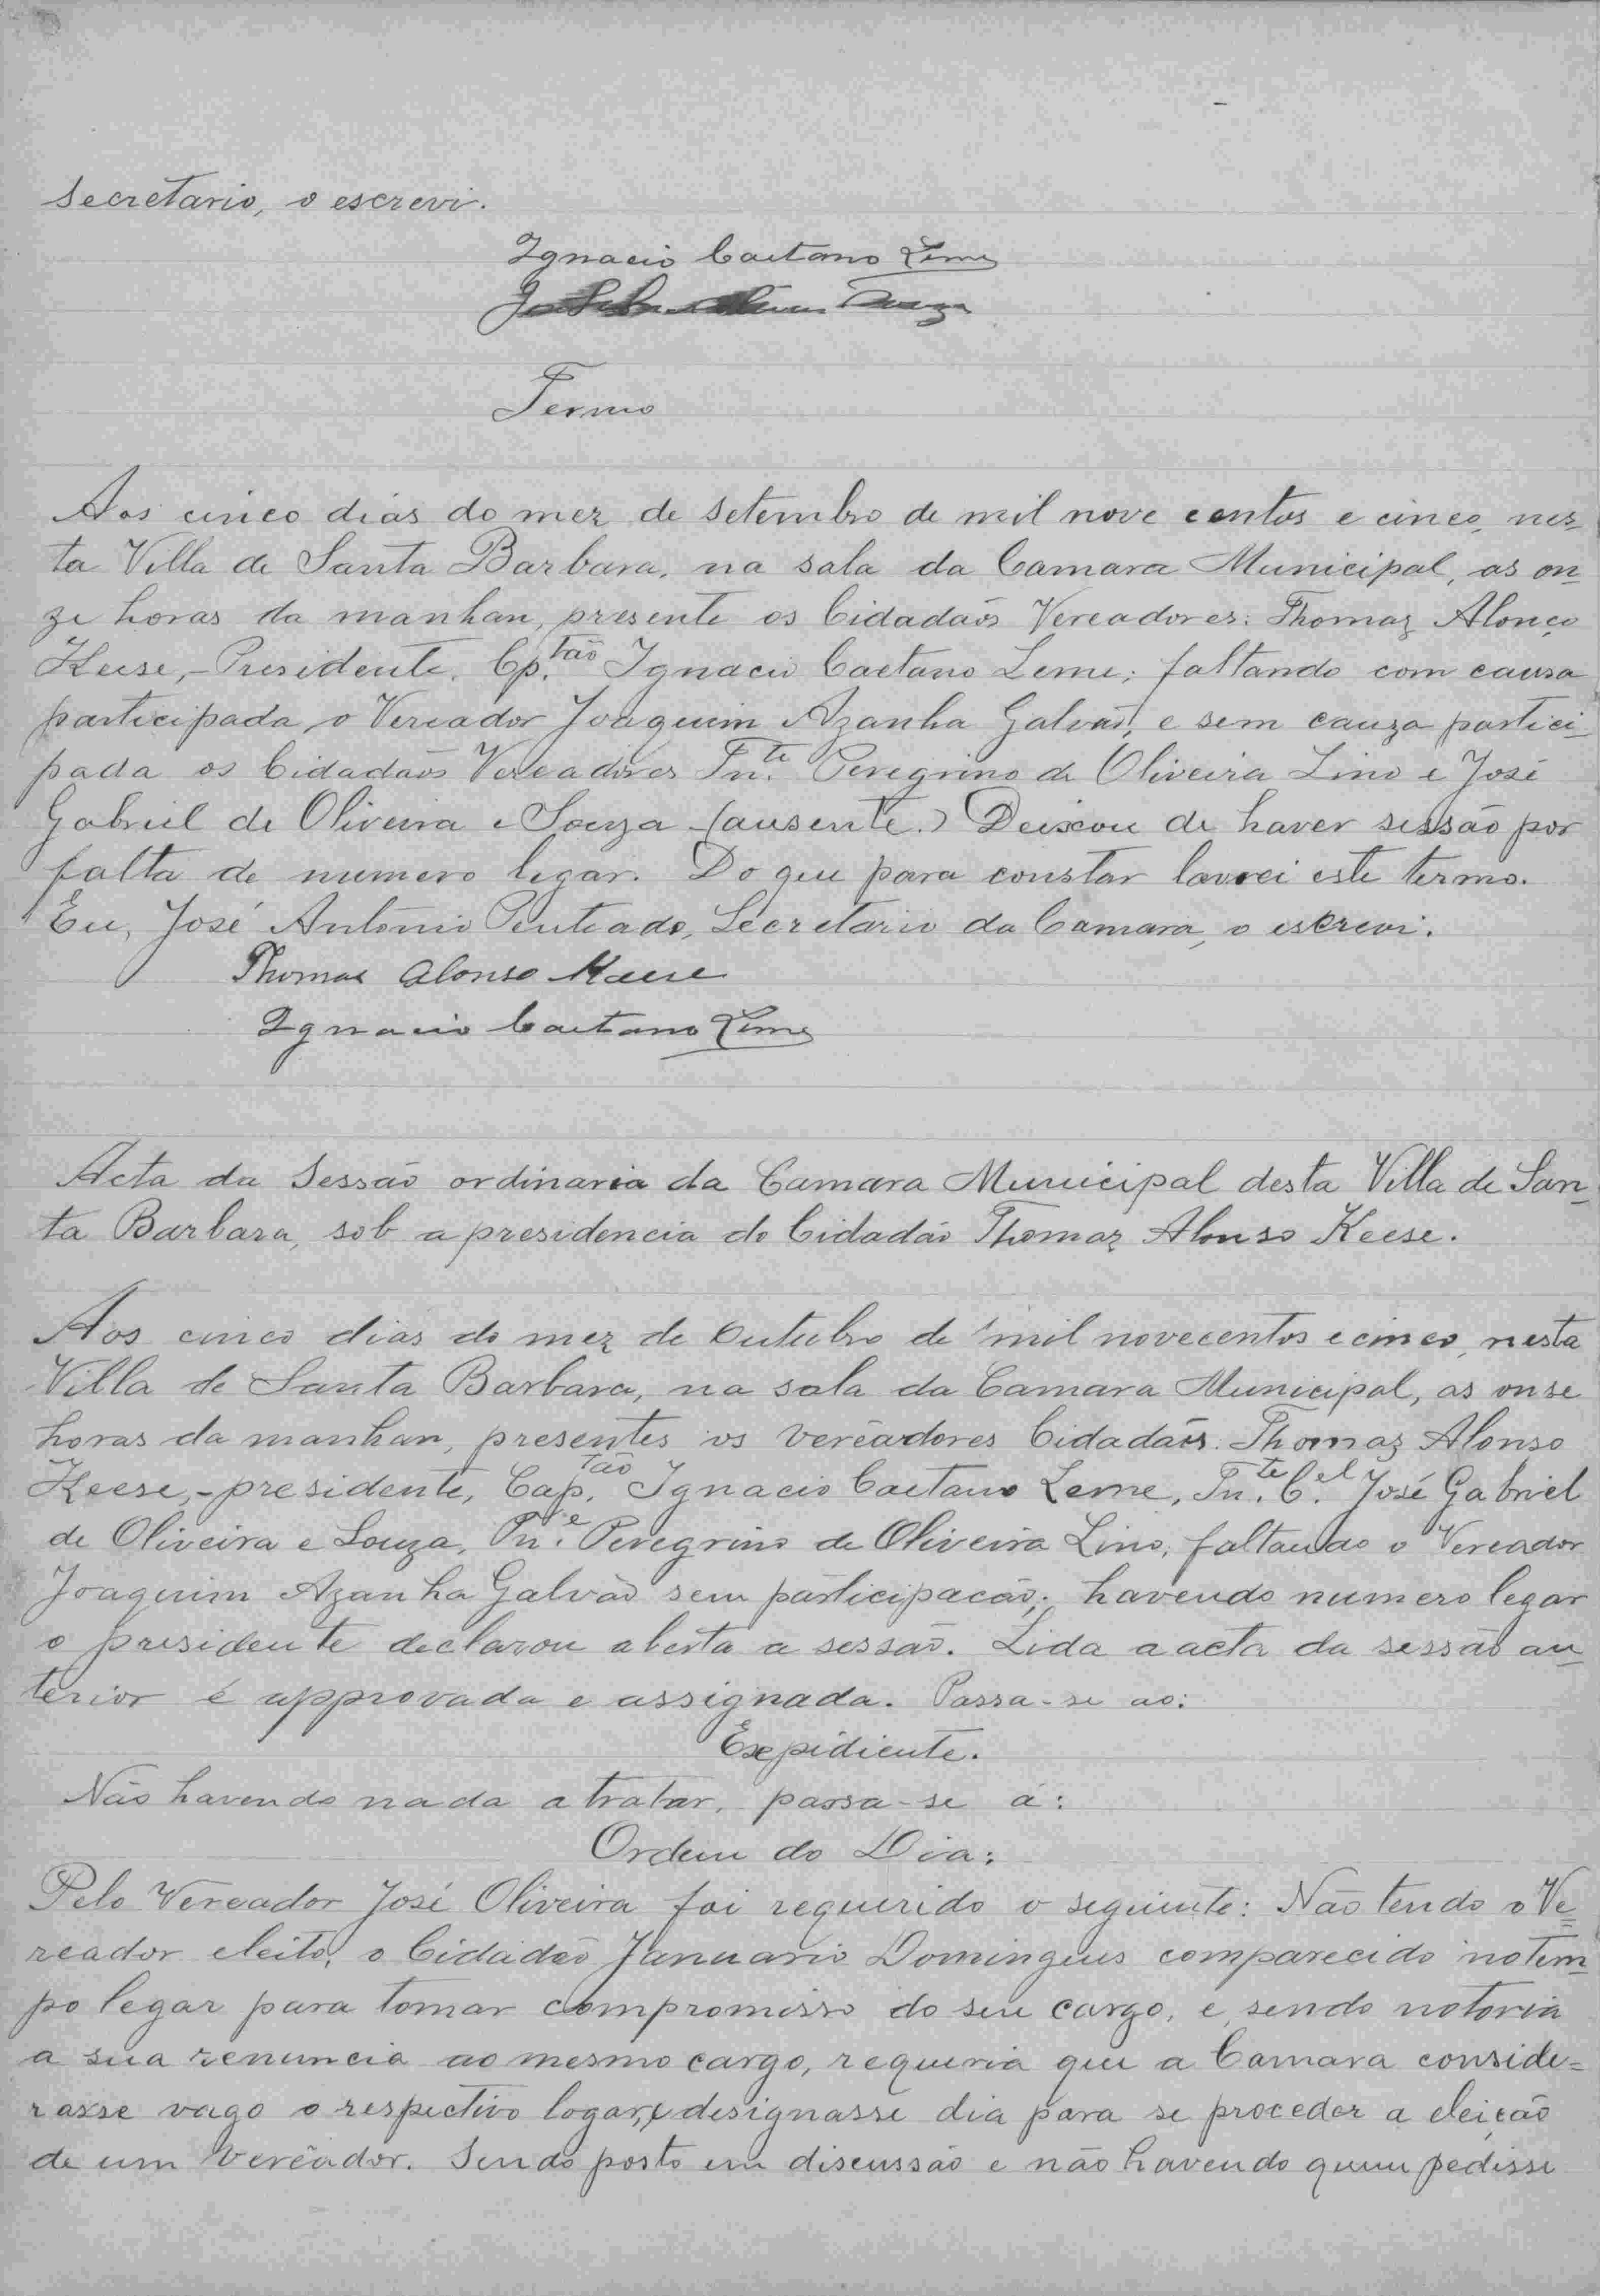 Secretario, o escrevi.
Ignacio Caetano Leme
Termo
Aos cinco dias do mez de setembro de mil nove centos e cinco, nes-
ta Villa de Santa Barbara, na sala da Camara Municipal, as on-
ze horas da manhan, presente os Cidadaõs Vereadores: Thomaz Alonço
Keese, - Presidente, Cp.tão Ignacio Caetano Leme; faltando com causa
participada, o Vereador Joaquim Azanha Galvaõ, e sem cauza partici-
pada os Cidadaõs Vereadores Tn.te Peregrino de Oliveira Lino e José
Gabriel de Oliveira e Souza (ausente.) Deixou de haver sessão por
falta de numero legar. Do que para constar lavrei este termo.
Eu, José Antonio Penteado, Secretario da Camara, o escrevi.
Thomas Alonso Keese
Ignacio Caetano Leme
Acta da Sessaõ ordinaria da Camara Municipal desta Villa de San-
ta Barbara, sob a presidencia do Cidadão Thomaz Alonso Keese.
Aos cinco dias do mez de Outubro de mil novecentos e cinco, nesta
Villa de Santa Barbara, na sala da Camara Municipal, as onse
horas da manhan, presentes os vereadores Cidadaõs: Thomaz Alonso
Keese, - presidente, Cap.tão Ignacio Caetano Leme, Tn.te C.el José Gabriel
de Oliveira e Souza, Tn.e Peregrino de Oliveira Lino, faltando o Vereador
Joaquim Azanha Galvaõ sem participacaõ; havendo numero legar
o presidente declarou aberta a sessaõ. Lida a acta da sessão an-
terior é approvada e assignada. Passa-se ao:
Expidiente.
Não havendo nada a tratar, passa-se á:
Ordem do Dia:
Pelo Vereador José Oliveira foi requerido o seguinte: Não tendo o Ve-
reador eleito, o Cidadão Januario Domingues comparecido no tem-
po legar para tomar compromisso do seu cargo, e, sendo notoria
a sua renuncia ao mesmo cargo, requeria que a Camara conside-
rasse vago o respectivo logar, e designasse dia para se proceder a eleição
de um vereador. Sendo posto em discussão e não havendo quem pedisse